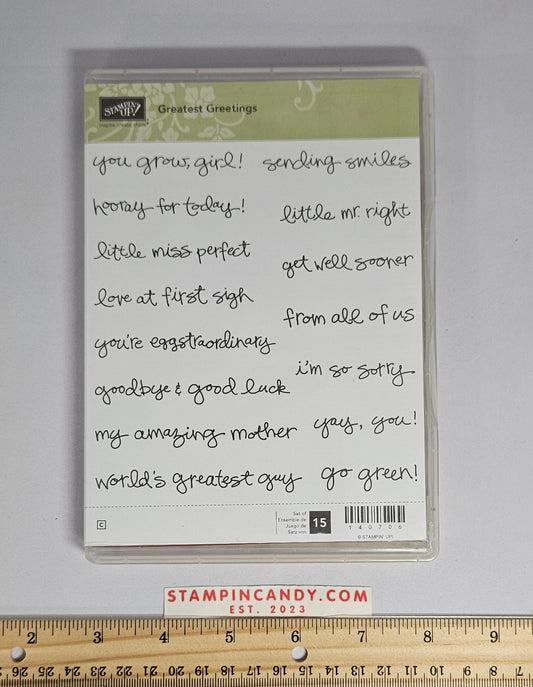 STAMPIN' UP!
inspire. create. share.
Greatest Greetings
you grow, girl!
sending smiles
hooray for today!
little mr. right
little miss perfect
get well sooner
love at first sigh
from all of us
you're eggstraordinary
i'm so sorry
goodbye & good luck
my amazing mother
yay, you!
world's greatest guy
go green!
C
Set of
Ensemble de
Juego de
Satz von
15
140706
© STAMPIN' UP!
STAMPINCANDY.COM
EST. 2023
2 3 4 5 6 7 8 9
26 25 24 23 22 21 20 19 18 17 16 15 14 13 12 11 10 9 8 7